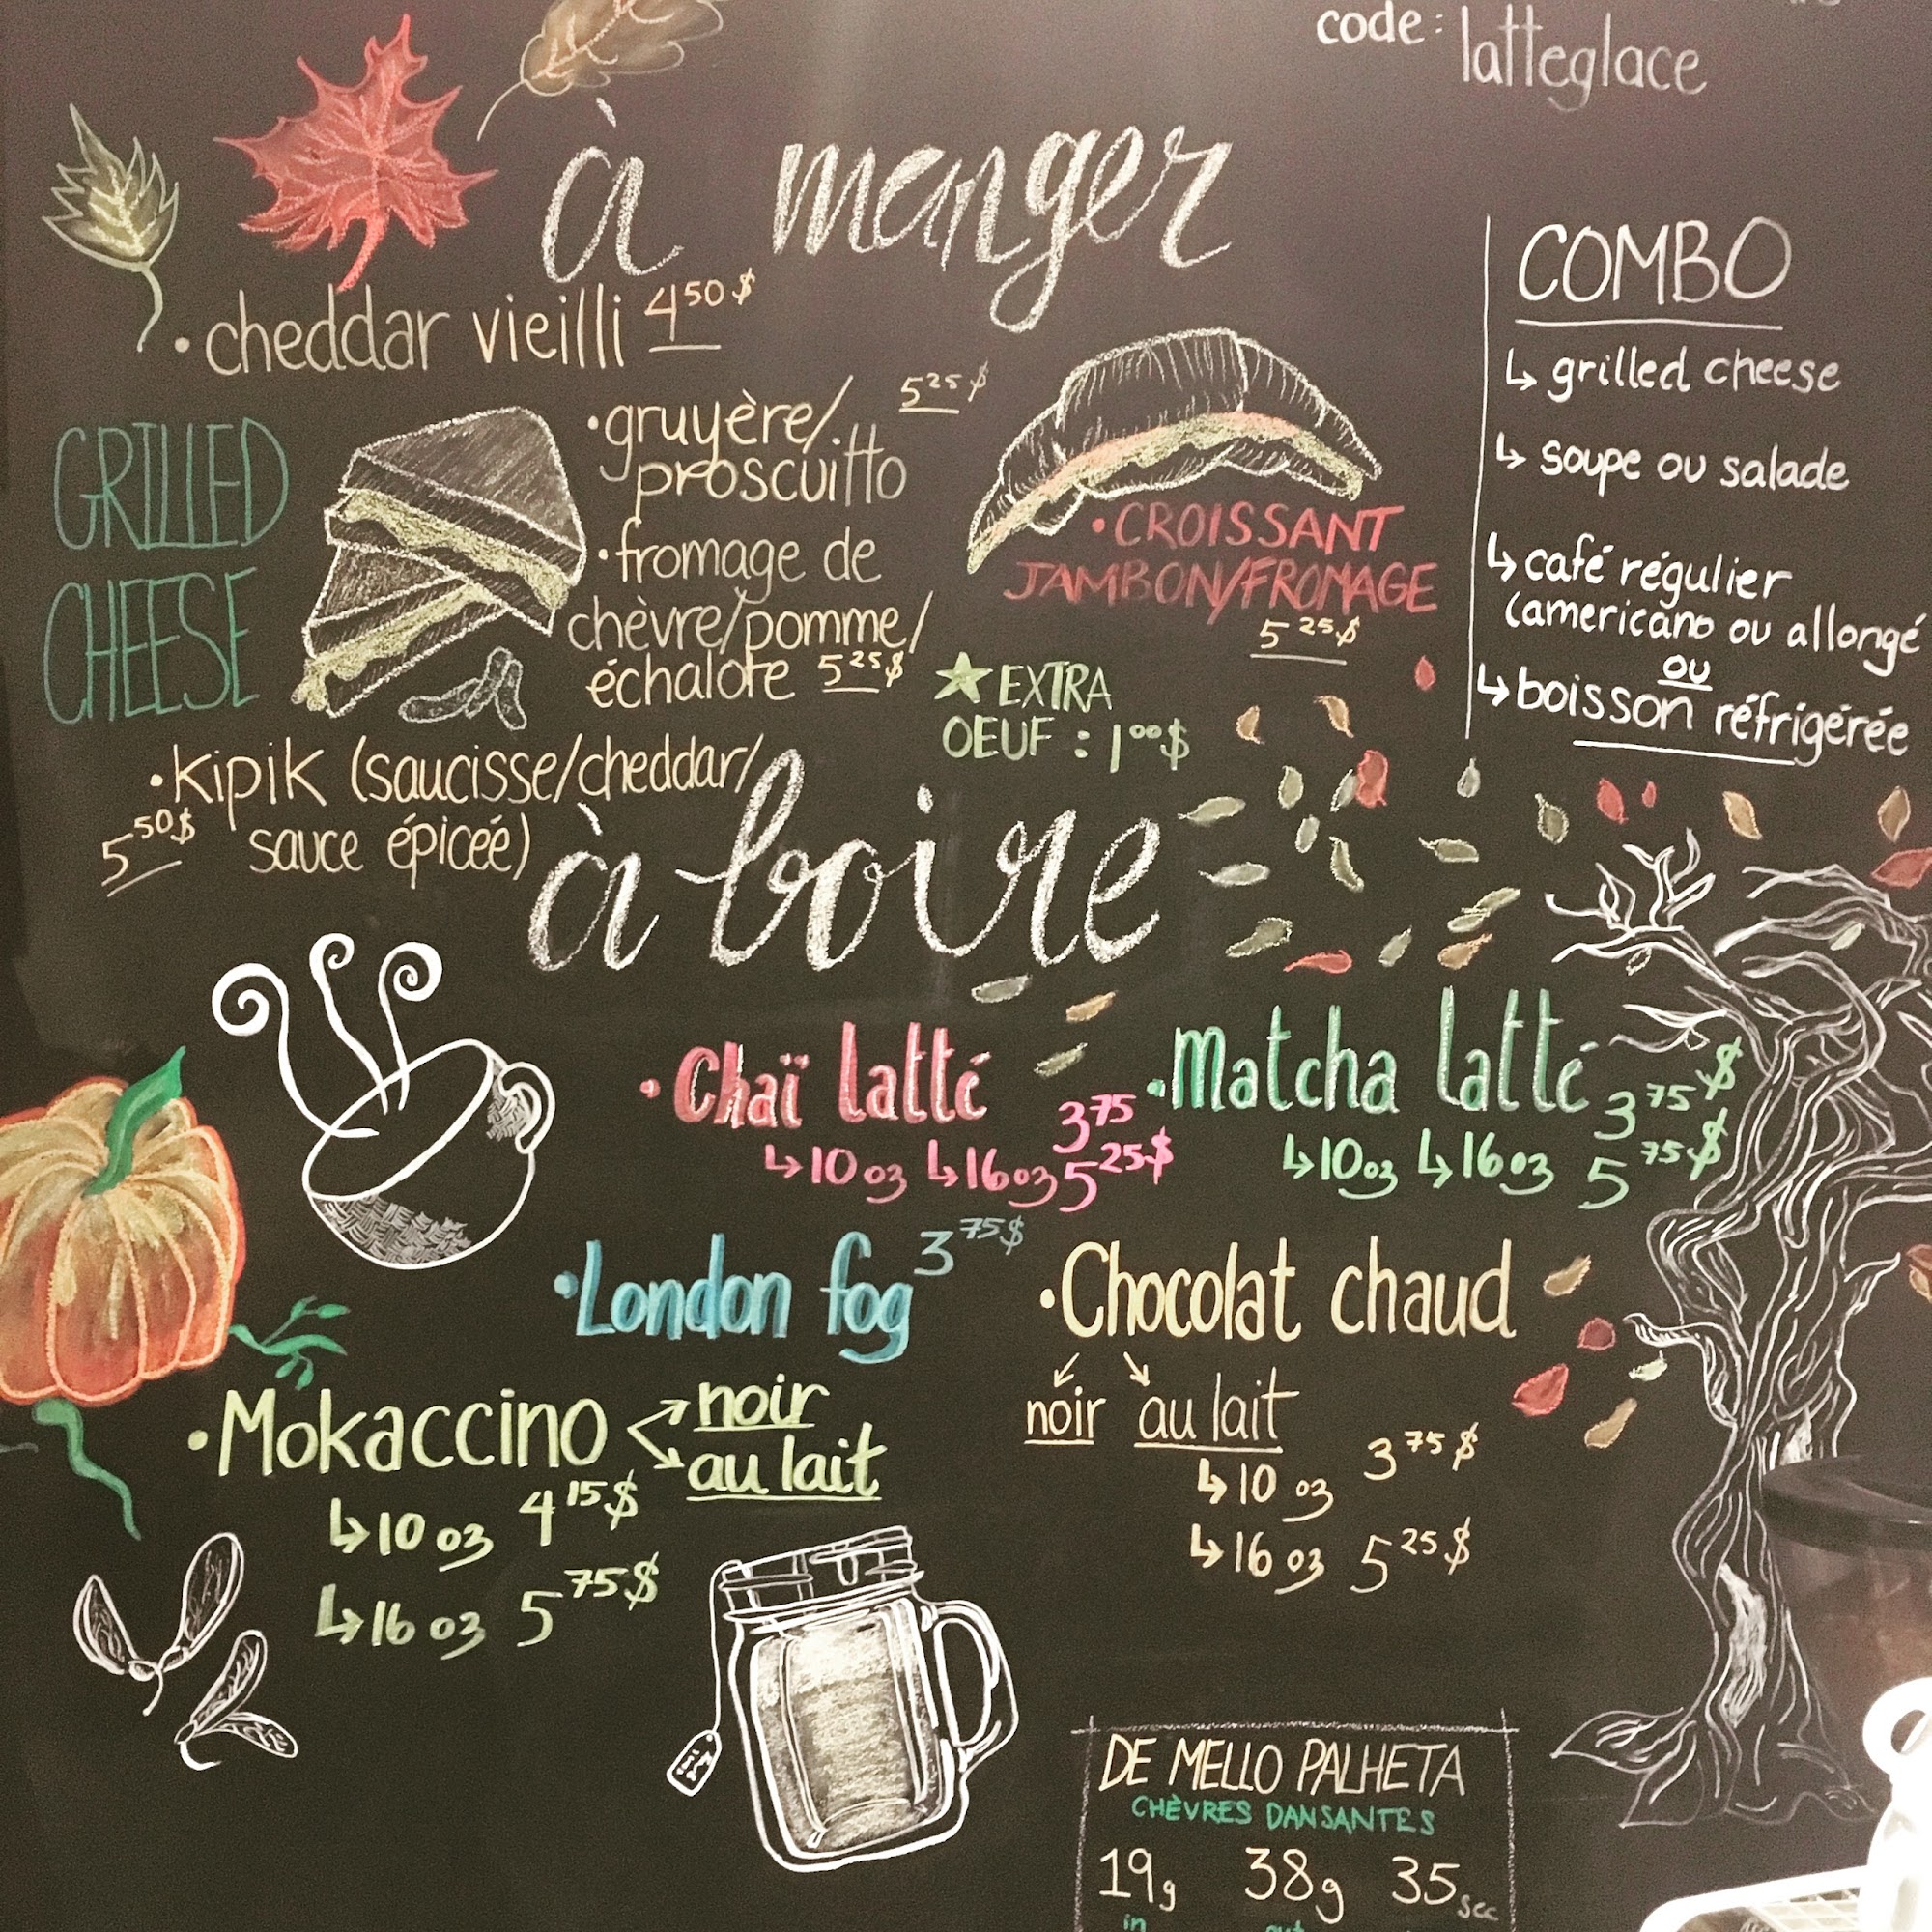 code: latteglace
à manger
• cheddar vieilli 4 50 $
GRILLED
CHEESE
• gruyère/ 5 25 $
proscuitto
• fromage de
chèvre/pomme/
échalote 5 25 $
• Kipik (saucisse/cheddar/
5 50 $ sauce épicéé)
• CROISSANT
JAMBON/FROMAGE
5 25 $
★ EXTRA
OEUF : 1 00 $
COMBO
↳ grilled cheese
↳ soupe ou salade
↳ café régulier
(americano ou allongé
ou
↳ boisson réfrigérée
à boire
• Chaï latté 3 75
↳ 10 oz ↳ 16 oz 5 25 $
• Matcha latté 3 75 $
↳ 10 oz ↳ 16 oz 5 75 $
• London fog 3 75 $
• Chocolat chaud
noir au lait
↳ 10 oz 3 75 $
↳ 16 oz 5 25 $
• Mokaccino noir
au lait
↳ 10 oz 4 15 $
↳ 16 oz 5 75 $
DE MELLO PALHETA
CHÈVRES DANSANTES
19g 38g 35 sec
in out